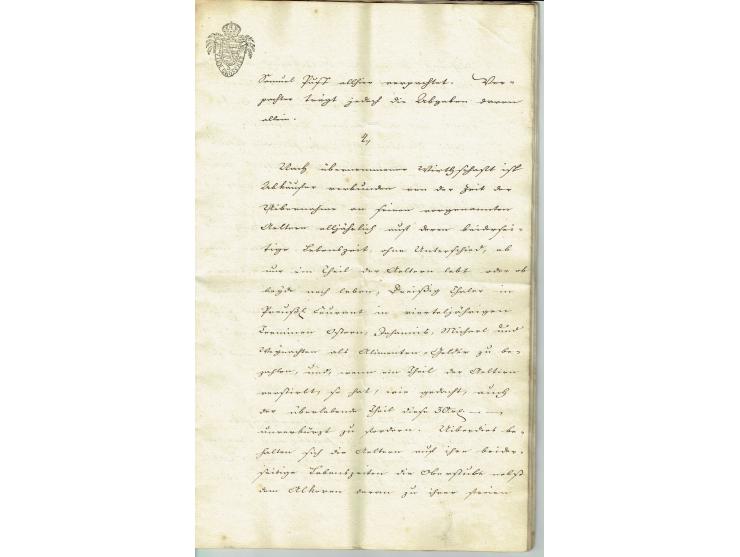 Samuel Puff allhier verpachtet. Ver-
pachter trägt jedoch die Abgaben davon
allein.
4,
Nach übernommener Wirthschaft ist
Abkäufer verbunden von der Zeit der
Übernahme an seinen vorgenannten
Aeltern alljährlich auf deren beidersei-
tige Lebenszeit ohne Unterschied, ob
nur ein Theil der Aeltern lebt oder ob
beyde noch leben, Dreißig Thaler in
Preußl. Courant in vierteljährigen
Terminen Ostern, Johannis, Michael und
Weynachten als Alimenten-Gelder zu be-
zahlen, und, wenn ein Theil der Aeltern
verstirbt, so hat, wie gedacht, auch
der überlebende Theil diese 30 rl. — —,
unverkürzt zu fordern. Uiberdies be-
halten sich die Aeltern auf ihre beider-
seitige Lebenszeiten die Oberstube nebst
dem Alkoven daran zu ihrer freien